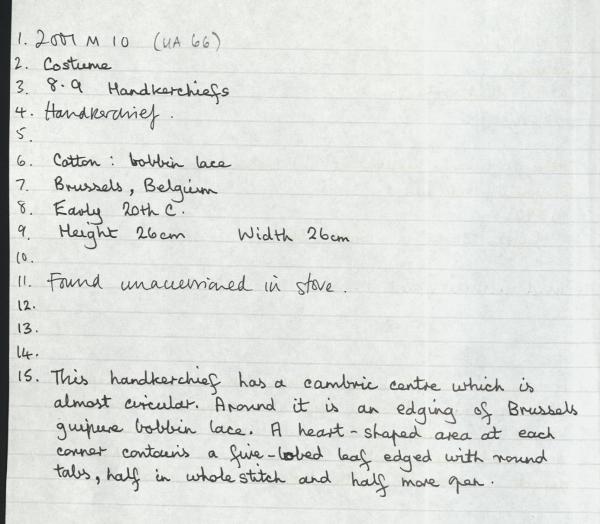 1. 2001 M 10 (UA 66)
2. Costume
3. 8.9 Handkerchiefs
4. Handkerchief.
5.
6. Cotton: bobbin lace
7. Brussels, Belgium
8. Early 20th C.
9. Height 26cm Width 26cm
10.
11. Found unaccessioned in store.
12.
13.
14.
15. This handkerchief has a cambric centre which is
almost circular. Around it is an edging of Brussels
guipure bobbin lace. A heart-shaped area at each
corner contains a five-lobed leaf edged with round
tabs, half in whole stitch and half more open.